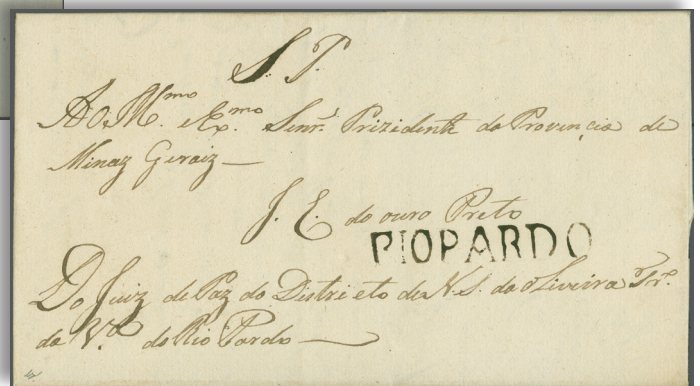 S. P.
Ao Illmo e Exmo Senr. Prizidente da Provincia de
Minaz Geraiz —
I. C. do ouro Preto
RIOPARDO
Do Juiz de Paz do Districto de N. S. da oliveira Tr.o
da V.a do Rio Pardo —